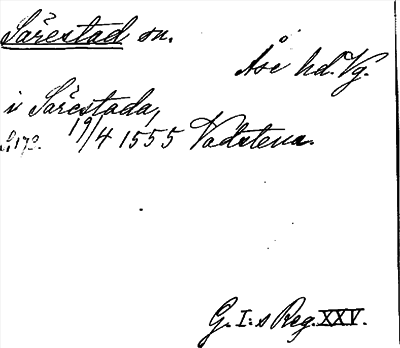 Särestad sn.
Åse hd. Vg.
i Särestada,
S. 172. 19/4 1555 Vadstena.
G. I:s Reg. XXV.